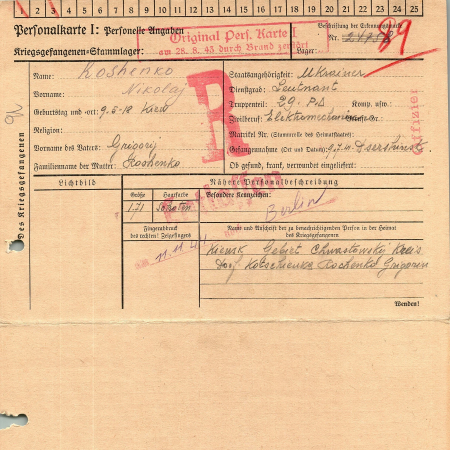 1 2 3 4 5 6 7 8 9 10 11 12 13 14 15 16 17 18 19 20 21 22 23 24 25
Personalkarte I: Personelle Angaben
Kriegsgefangenen-Stammlager:
Original Pers. Karte I
am 28. 8. 43 durch Brand zerstört
Beschriftung der Erkennungsmarke
Nr.
Lager:
89
Des Kriegsgefangenen
Name: Koshenko
Vorname: Nikolaj
Geburtstag und -ort: 9.5.18 Kiew
Religion:
Vorname des Vaters: Grigorij
Familienname der Mutter: Koshenko
Staatsangehörigkeit: Ukrainer
Dienstgrad: Leutnant
Truppenteil: 29. P.D Komp. usw.:
Zivilberuf: Elektromechaniker
Matrikel Nr. (Stammrolle des Heimatstaates):
Gefangennahme (Ort und Datum): 9.7.41 Dsershinsk
Ob gesund, krank, verwundet eingeliefert:
Offizier
R
Lichtbild
Nähere Personalbeschreibung
Größe
Haarfarbe
Besondere Kennzeichen:
1.71
Berlin
Fingerabdruck
des rechten! Zeigefingers
11. 11. 44
Name und Anschrift der zu benachrichtigenden Person in der Heimat
des Kriegsgefangenen
Kiewsk Gebiet Chwastowskij Kreis
Dorf Koschenko Grigorij
Wenden!